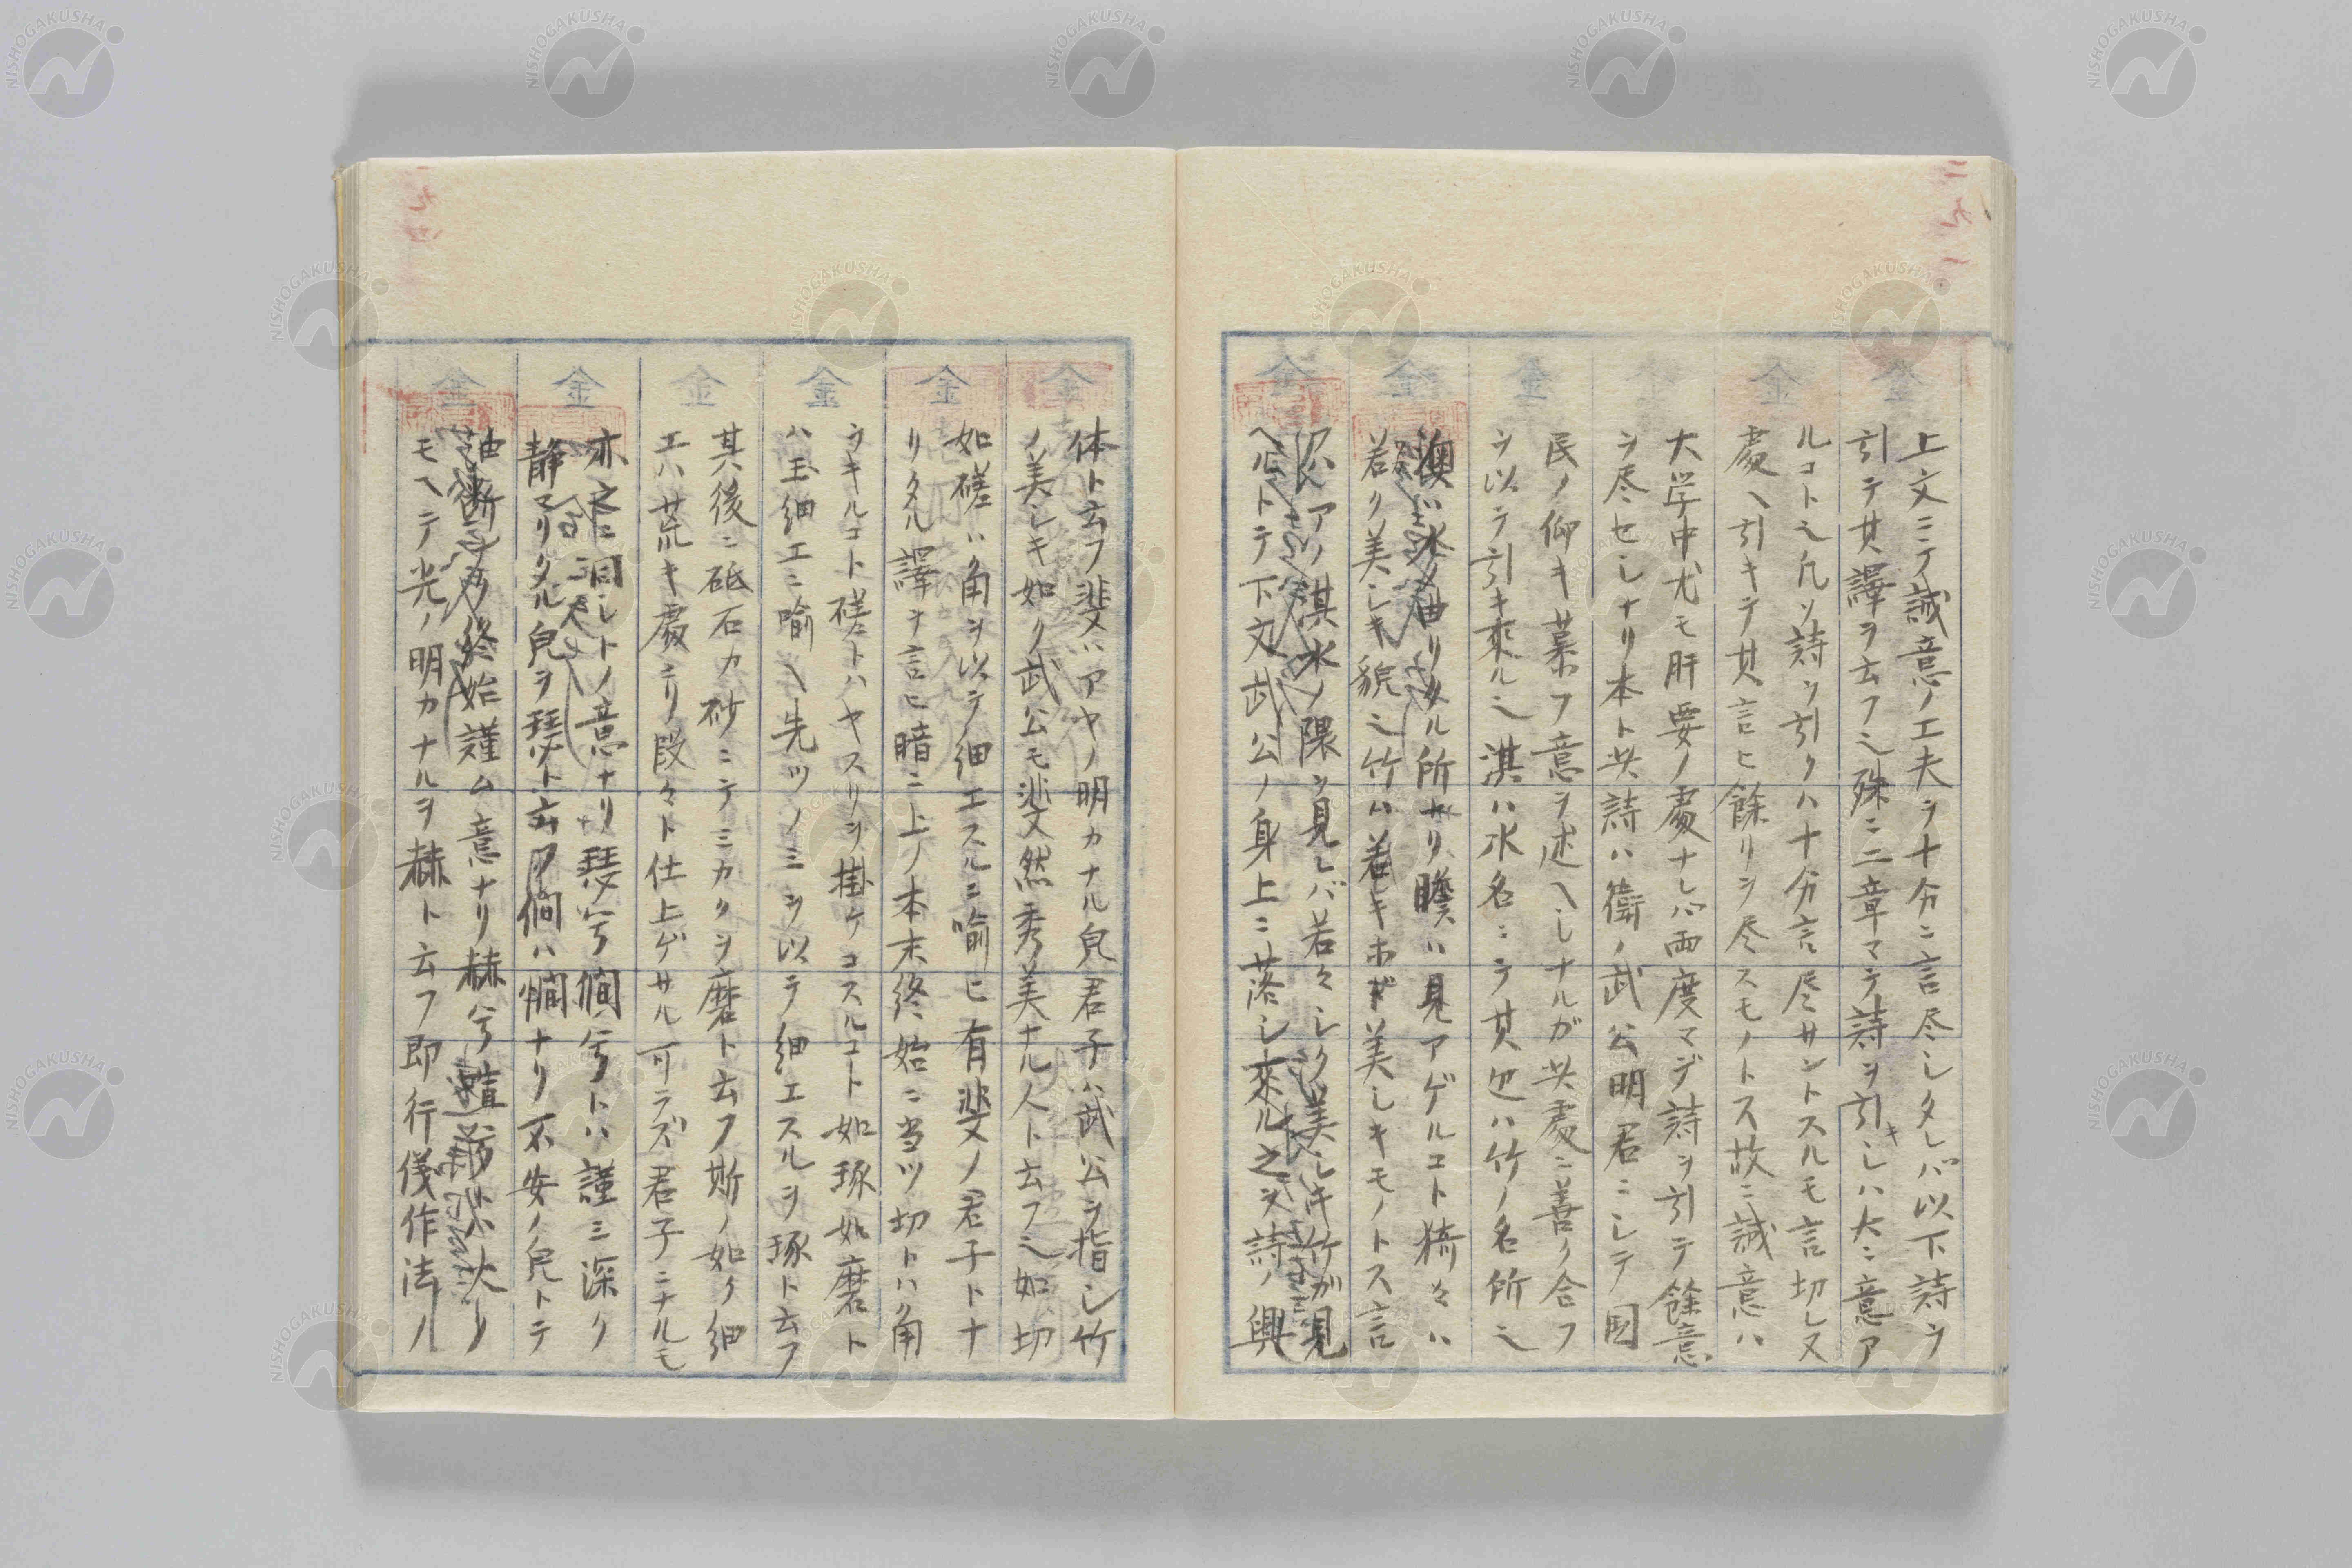 上文ニテ誠意ノ工夫ヲ十分ニ言尽シタレバ以下詩ヲ
引テ其譯ヲ云フ也殊ニ二章マテ詩ヲ引キシハ大ニ意ア
ルコト也凡ソ詩ヲ引クハ十分言尽サントスルモ言切レヌ
處ヘ引キテ其言ヒ餘リヲ尽スモノトス故ニ誠意ハ
大学中尤モ肝要ノ處ナレバ両度マデ詩ヲ引テ餘意
ヲ尽セシナリ本ト此詩ハ衛ノ武公明君ニシテ国
民ノ仰キ慕フ意ヲ述ヘシナルガ此處ニ善ク合フ
ヲ以テ引キ来ル也淇ハ水名ニテ其地ハ竹ノ名所也
澳ハ水ノ曲リタル所ナリ瞻ハ見アゲルコト猗々ハ
若ク美シキ貌也竹ハ若キホド美シキモノトス言
アノ淇水ノ隈ヲ見レバ若々シク美シキ竹ガ見
ヘルトテ下文武公ノ身上ニ落シ来ル之ヲ詩ノ興
体ト云フ斐ハアヤノ明カナル皃君子ハ武公ヲ指シ竹
ノ美シキ如ク武公モ斐然秀美ナル人ト云フ也如切
如磋ハ角ヲ以テ細工スルニ喩ヒ有斐ノ君子トナ
リタル譯ヲ言ヒ暗ニ上ノ本末終始ニ当ツ切トハ角
ヲキルコト磋トハヤスリヲ掛ケコスルコト如琢如磨ト
ハ玉細工ニ喩ヘ先ツノミヲ以テ細工スルヲ琢ト云フ
其後ニ砥石カ砂ニテミカクヲ磨ト云フ斯ノ如ク細
工ハ荒キ處ヨリ段々ト仕上ゲサル可ラズ君子ニナルモ
亦之ニ同シトノ意ナリ瑟兮僩兮トハ謹ミ深ク
静マリタル皃ヲ瑟ト云フ僩ハ憪ナリ不安ノ皃トテ
油断ナク終始謹ム意ナリ赫兮喧兮
モヘテ光ノ明カナルヲ赫ト云フ即行儀作法ノ
金
NISHOGAKUSHA